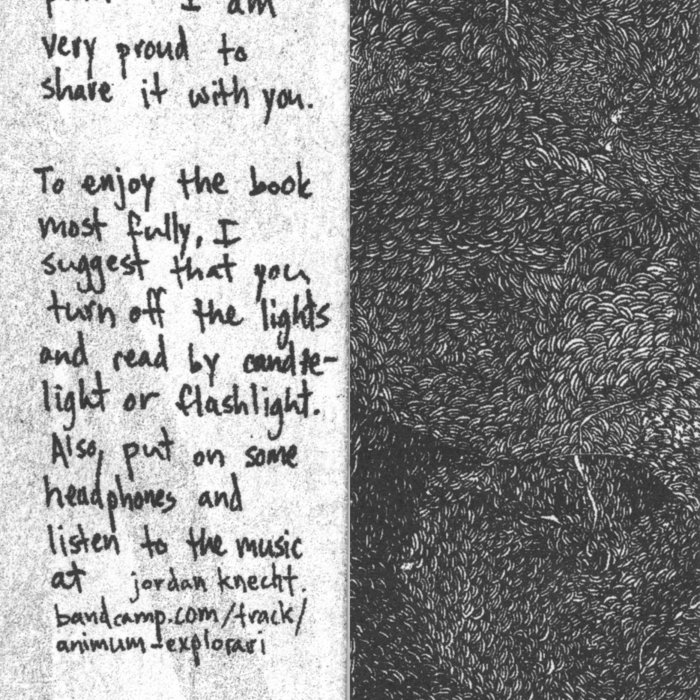 I am
very proud to
share it with you.
To enjoy the book
most fully, I
suggest that you
turn off the lights
and read by candle-
light or flashlight.
Also, put on some
headphones and
listen to the music
at jordanknecht.
bandcamp.com/track/
animum-explorari